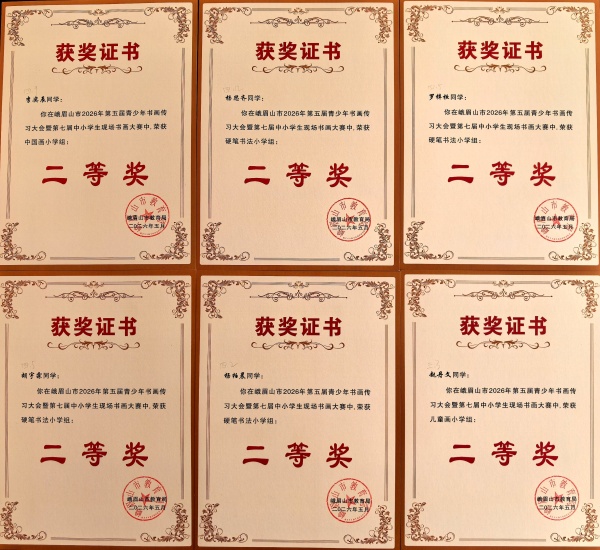 获奖证书
李奕辰同学：
你在峨眉山市2026年第五届青少年书画传
习大会暨第七届中小学生现场书画大赛中，荣获
中国画小学组：
二等奖
峨眉山市教育局
二〇二六年五月
获奖证书
杨思齐同学：
你在峨眉山市2026年第五届青少年书画传
习大会暨第七届中小学生现场书画大赛中，荣获
硬笔书法小学组：
二等奖
峨眉山市教育局
二〇二六年五月
获奖证书
同学：
你在峨眉山市2026年第五届青少年书画传
习大会暨第七届中小学生现场书画大赛中，荣获
硬笔书法小学组：
二等奖
峨眉山市教育局
二〇二六年五月
获奖证书
胡宇霖同学：
你在峨眉山市2026年第五届青少年书画传
习大会暨第七届中小学生现场书画大赛中，荣获
硬笔书法小学组：
二等奖
峨眉山市教育局
二〇二六年五月
获奖证书
杨柏晨同学：
你在峨眉山市2026年第五届青少年书画传
习大会暨第七届中小学生现场书画大赛中，荣获
硬笔书法小学组：
二等奖
峨眉山市教育局
二〇二六年五月
获奖证书
同学：
你在峨眉山市2026年第五届青少年书画传
习大会暨第七届中小学生现场书画大赛中，荣获
儿童画小学组：
二等奖
峨眉山市教育局
二〇二六年五月